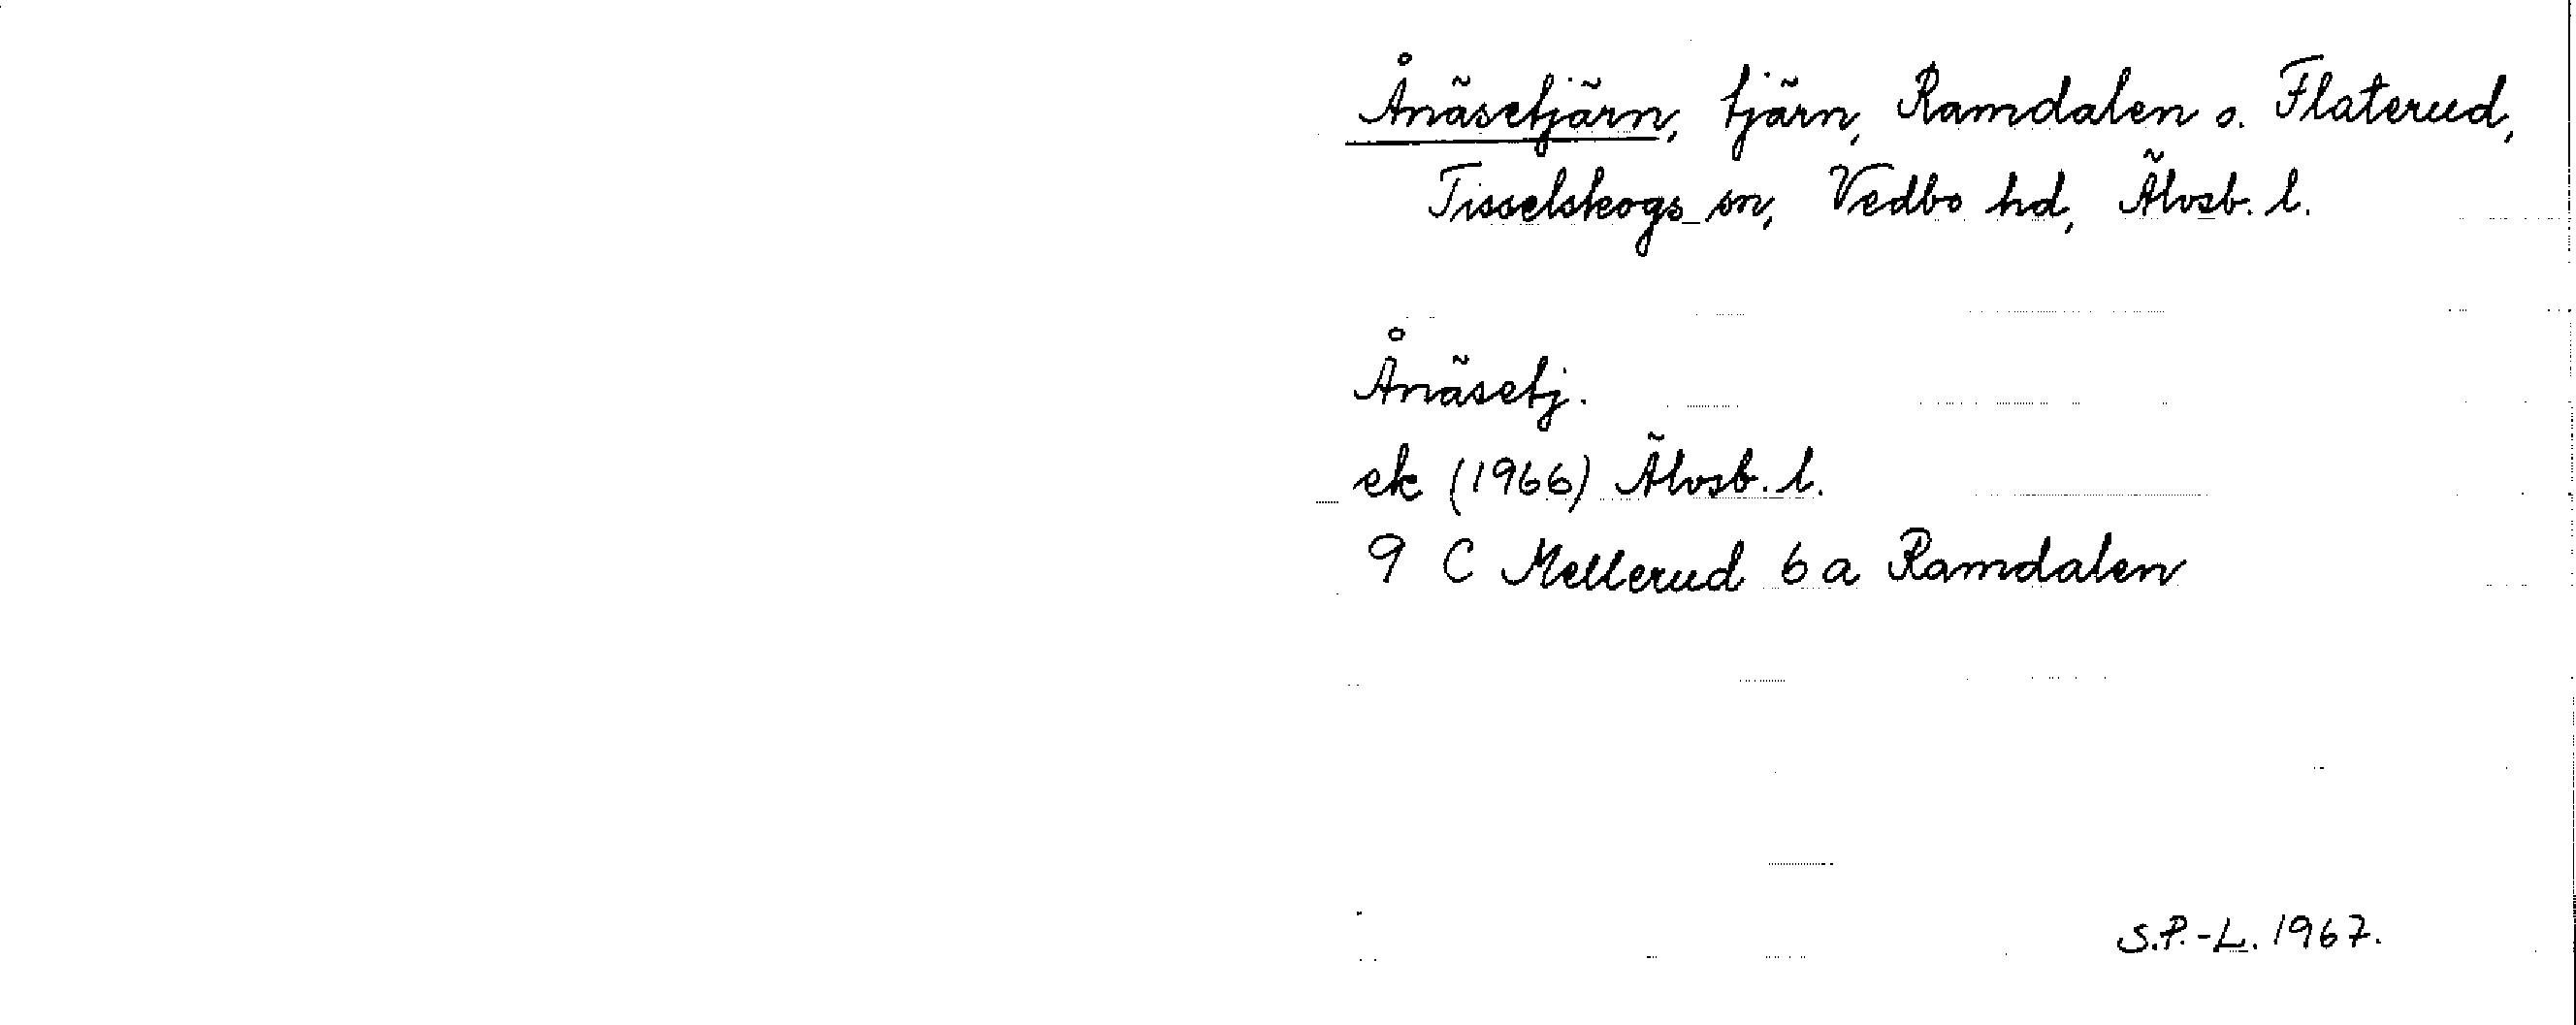 Ånäsetjärn, tjärn, Ramdalen o. Flaterud,
Tisselskogs sn, Vedbo hd, Älvsb. l.
Ånäsetj.
ek (1966) Älvsb. l.
9 C Mellerud 6 a Ramdalen
S.P.-L. 1967.